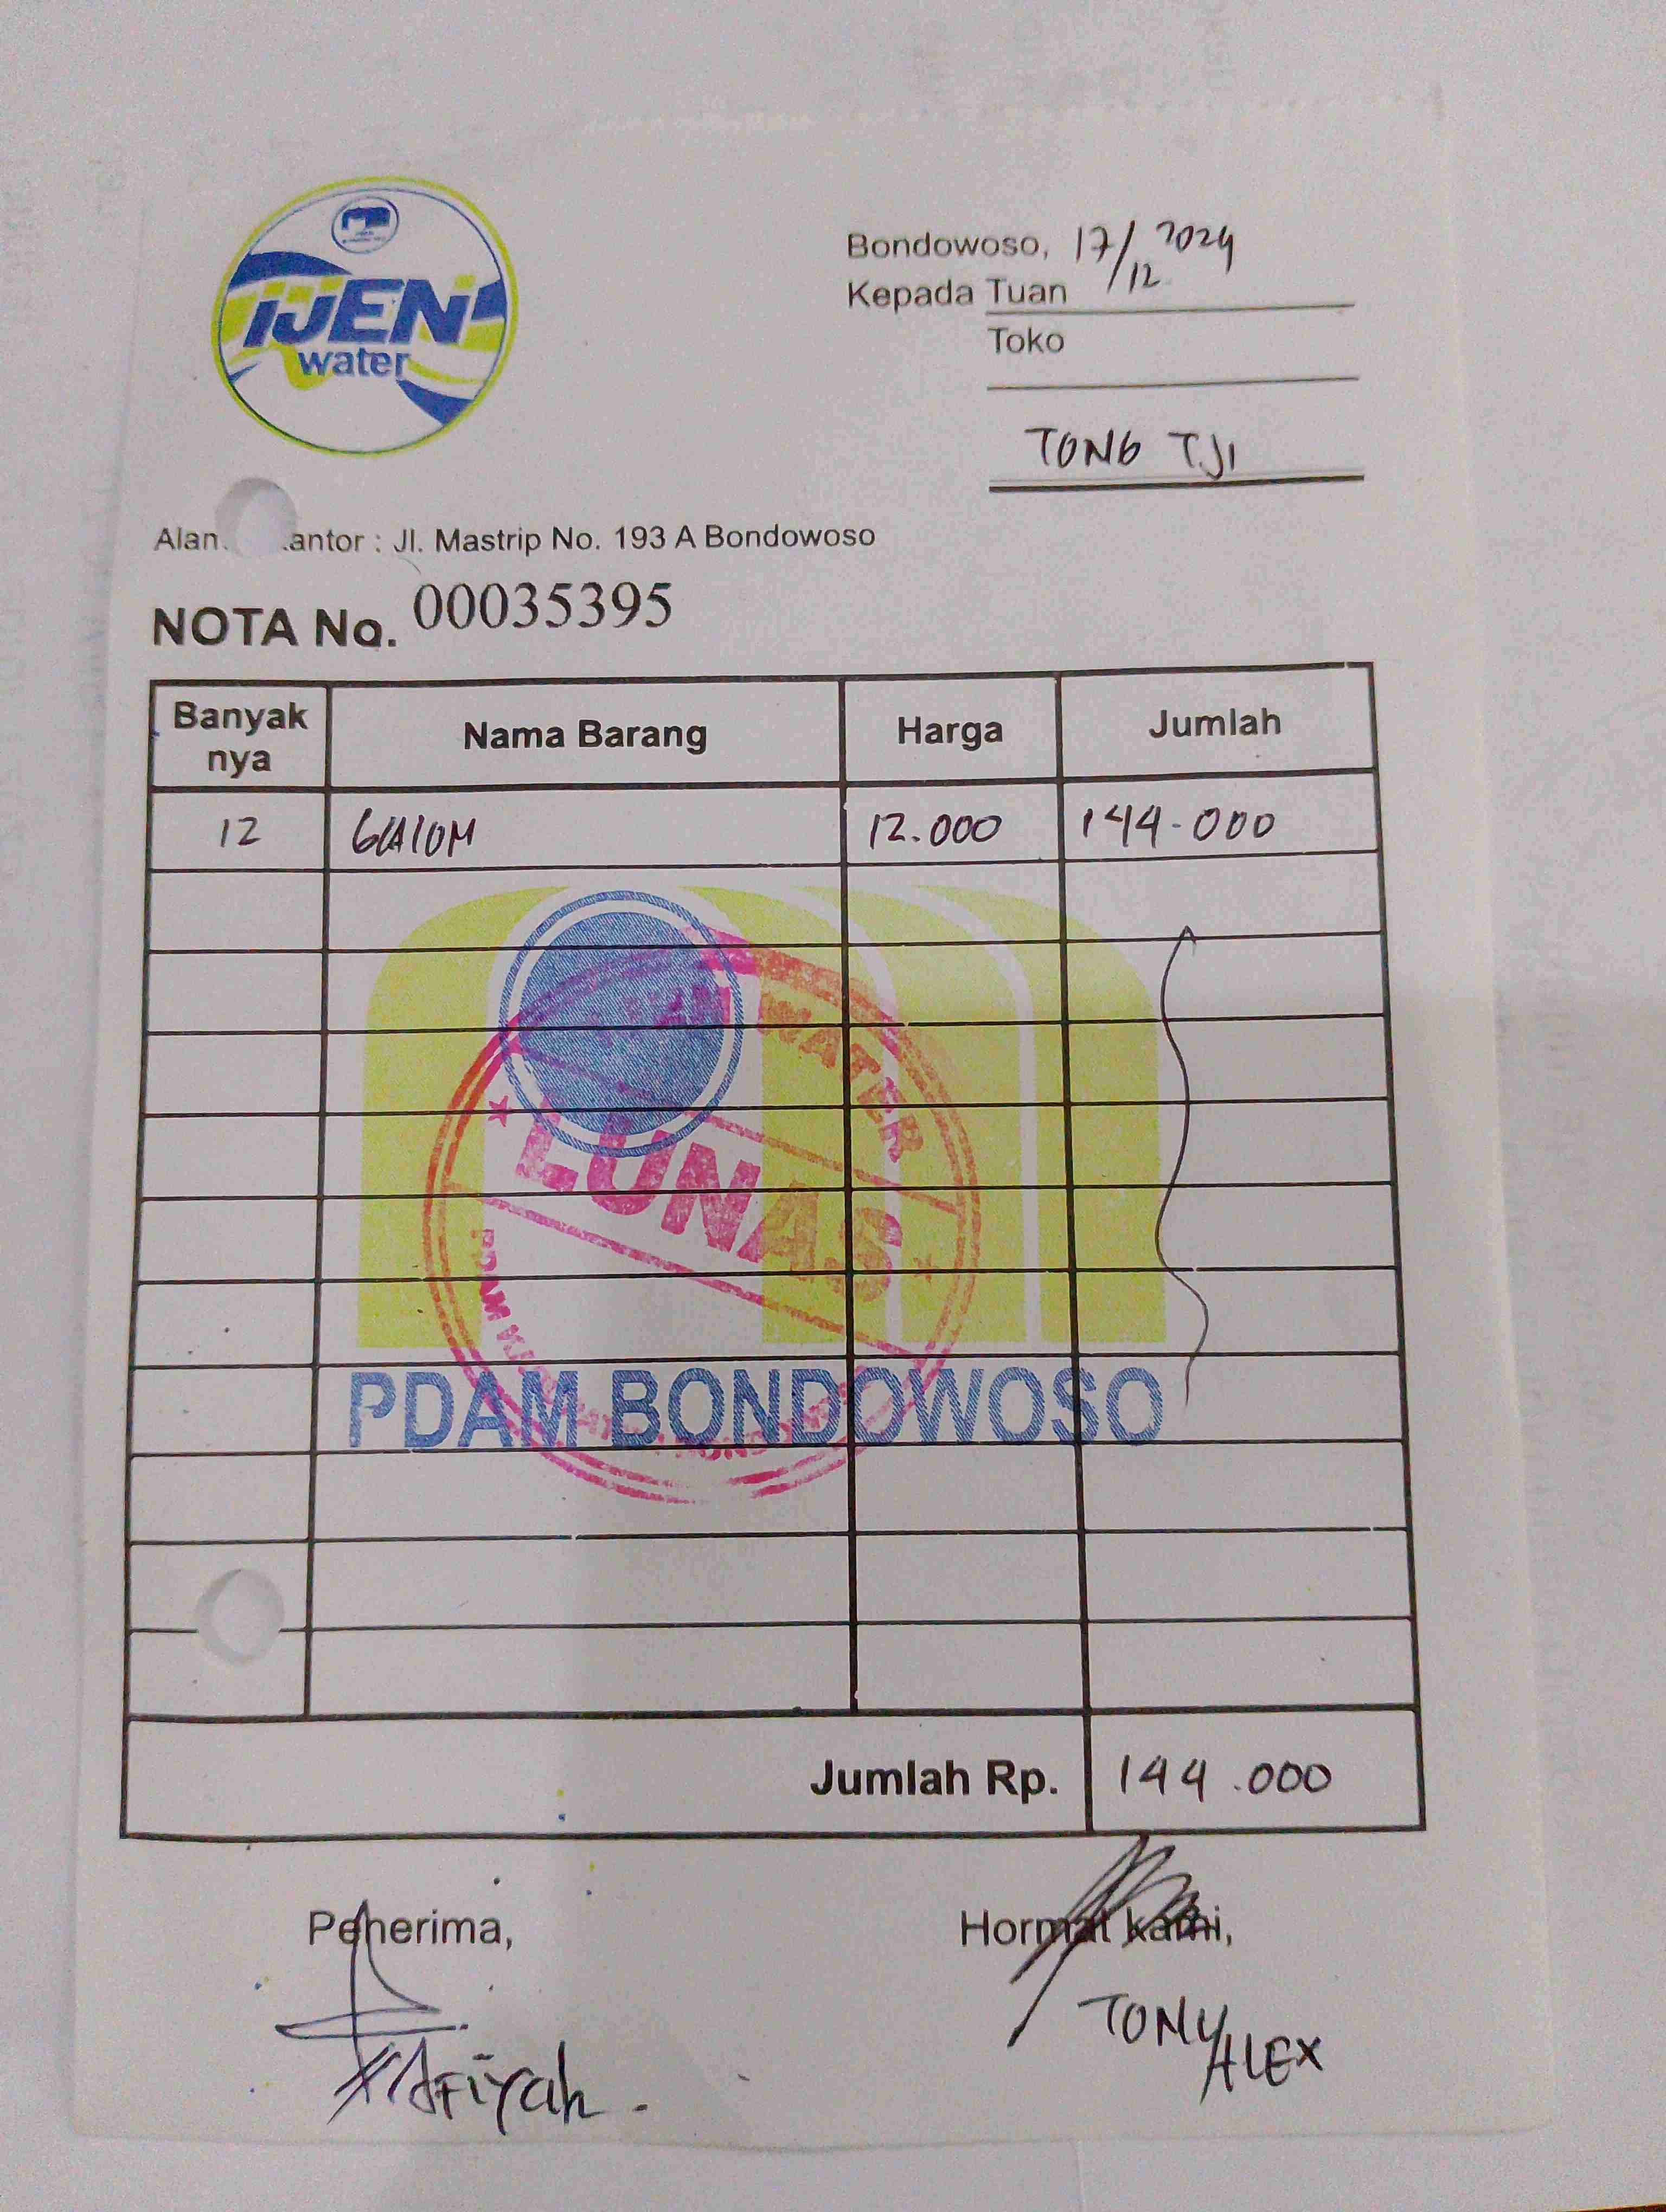 IJEN
water
Bondowoso, 17/12 2024
Kepada Tuan
Toko
TONG TJI
Alan. antor : Jl. Mastrip No. 193 A Bondowoso
NOTA No. 00035395
Banyak nya Nama Barang Harga Jumlah
12 GALON 12.000 144.000
WATER
LUNAS
PDAM
PDAM BONDOWOSO
Jumlah Rp. 144.000
Penerima, Hormat kami,
Afiyah. TONY/ALEX